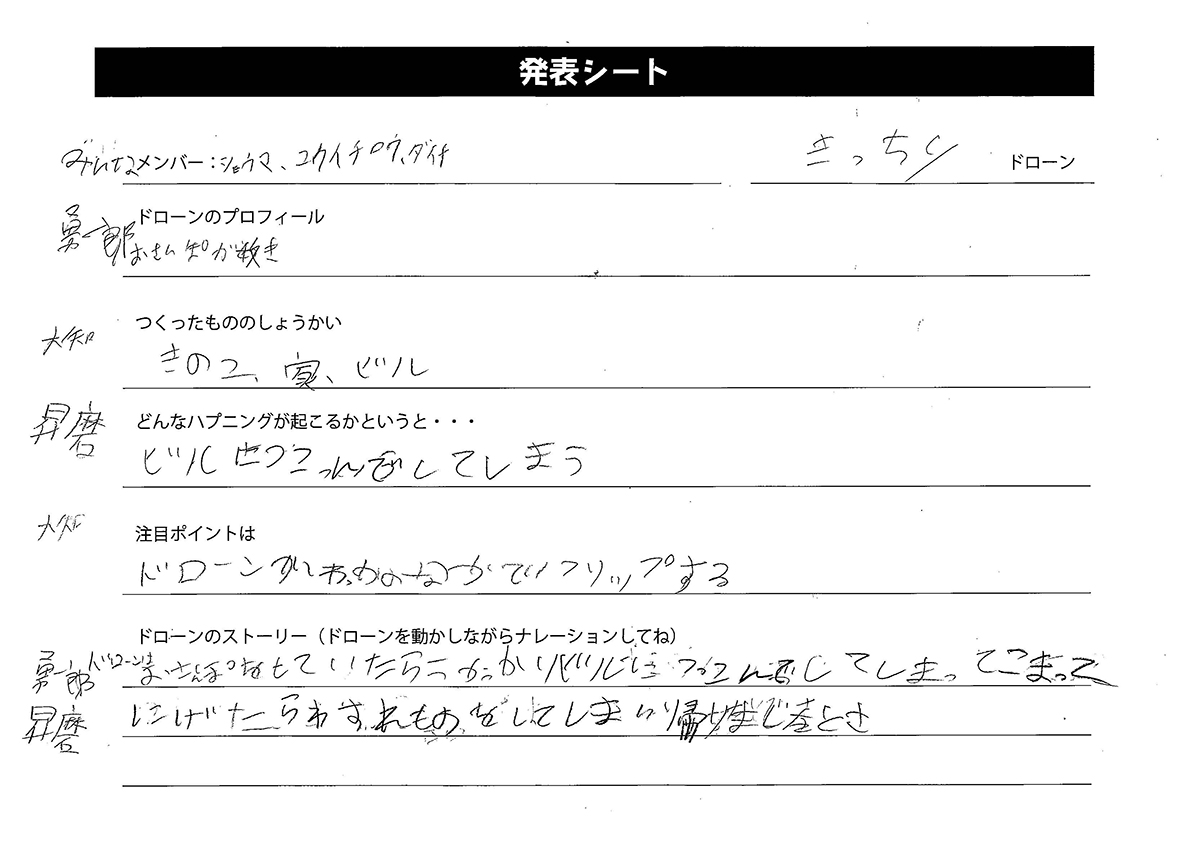 発表シート
みんなメンバー：ショウマ、ユウイチロウ、ダイチ
きっちり ドローン
勇一郎 ドローンのプロフィール
おさんぽが好き
大知 つくったもののしょうかい
きのこ、家、ビル
昇磨 どんなハプニングが起こるかというと・・・
ビルにつっこんでしてしまう
大知 注目ポイントは
ドローンがわっかのなかでフリップする
ドローンのストーリー（ドローンを動かしながらナレーションしてね）
勇一郎 ドローンは おさんぽをしていたらうっかりビルに つっこんでしてしまってこまって
昇磨 にげたらわすれものをしてしまい帰り